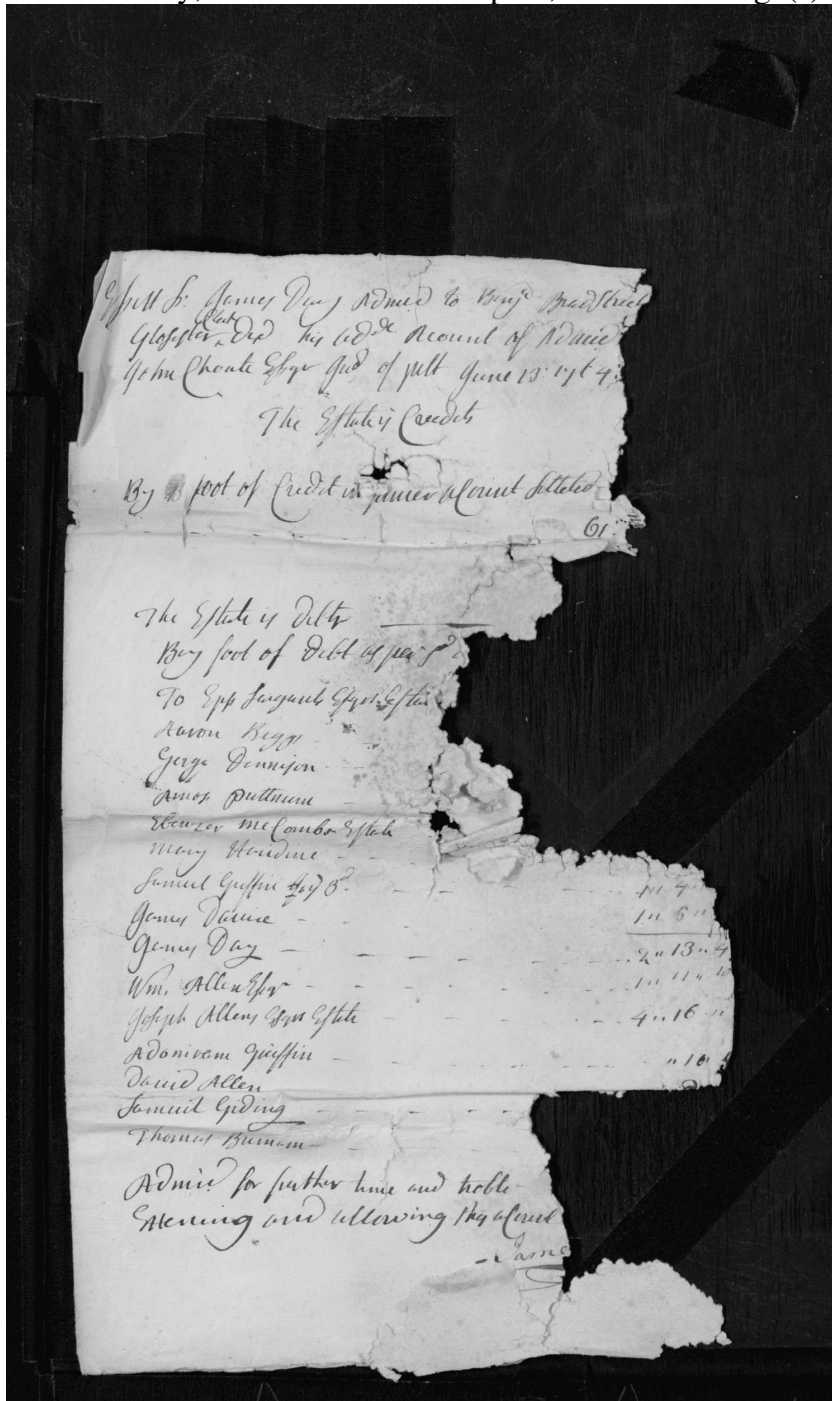 Essex Ss. James Day Admr to Benja Bradstreet
Glosester Late Decd his Add Acount of Admin
John Choate Esqr Jud of June 13 1764
The Estate is Credit
By foot of Credit in former aCount Settled
61
The Estate is Debtr
By foot of Debt as per
To Epps Sargents Esqrs Estate
Aaron Riggs
Gorge Dennison
Amos Puttnum
Ebenezer mcCombs Estate
Mary Hardine
Samuel Griffin 3d 1 " 4 "
James 1 " 6 "
James Day 2 " 13 " 4
Wm. Allen Esqr 1 " 11 " 10
Joseph Allens Esqrs Estate 4 " 16 "
Adoniram Griffin " 10
David Allen
Samuel Giding
Thomas Burnam
Admr for further time and troble
and allowing this aCount
Jame